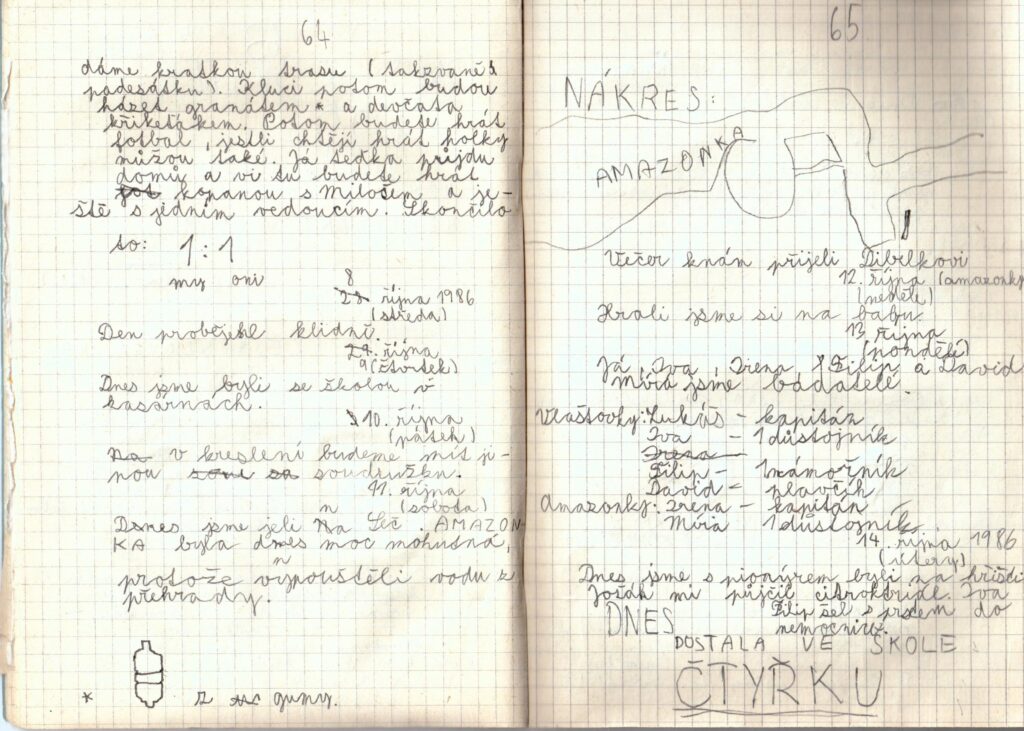 64
dáme kratkou trasu (takzvaně
padesátku). Kluci potom budou
házet granátem * a devčata
křiketákem. Potom budete hrát
fotbal, jestli chtějí hrát holky
můžou také. Já teďka přijdu
domů a vi tu budete hrát
kopanou s Milošem a je-
ště s jedním vedoucím. Skončilo
to: 1:1
my oni
8
28. října 1986
(středa)
Den proběhl klidně.
29. října
9 (čtvrtek)
Dnes jsme byli se školou v
kasárnách.
10. října
(pátek)
Na v kreslení budeme mít ji-
nou soudružku.
11. října
(sobota)
n
Dnes jsme jeli na Seč. AMAZON-
KA byla dnes moc mohutná,
n
protože vypouštěli vodu z
přehrady.
* z guny.
65
NÁKRES:
AMAZONKA
Večer knám přijeli Dibelkovi
12. října (amazonky
(neděle)
Hrali jsme si na babu.
13. října
(pondělí)
Já, Iva, Irena, Filip a David
Míra jsme badatelé.
Vlaštovky: Lukáš - kapitán
Iva - 1 důstojník
Irena
Filip - 1 námořník
David - plavčík
Amazonky: Irena - kapitán
Míra 1 důstojník
14. října 1986
(úterý)
Dnes jsme s pionýrem byli na hřišti
Jošák mi půjčil citroktrial. Iva
DNES Filip šel s prstem do
nemocnice.
DOSTALA VE ŠKOLE
ČTYŘKU